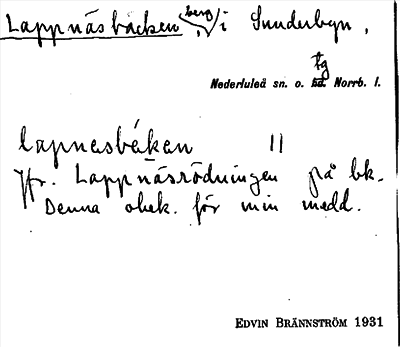 Lappnäsbäcken, berg, i Sunderbyn,
tg
Nederluleå sn. o. hd. Norrb. l.
lapnesbäken ||
Jfr. Lappnäsrödningen på bk.
Denna obek. för min medd.
EDVIN BRÄNNSTRÖM 1931